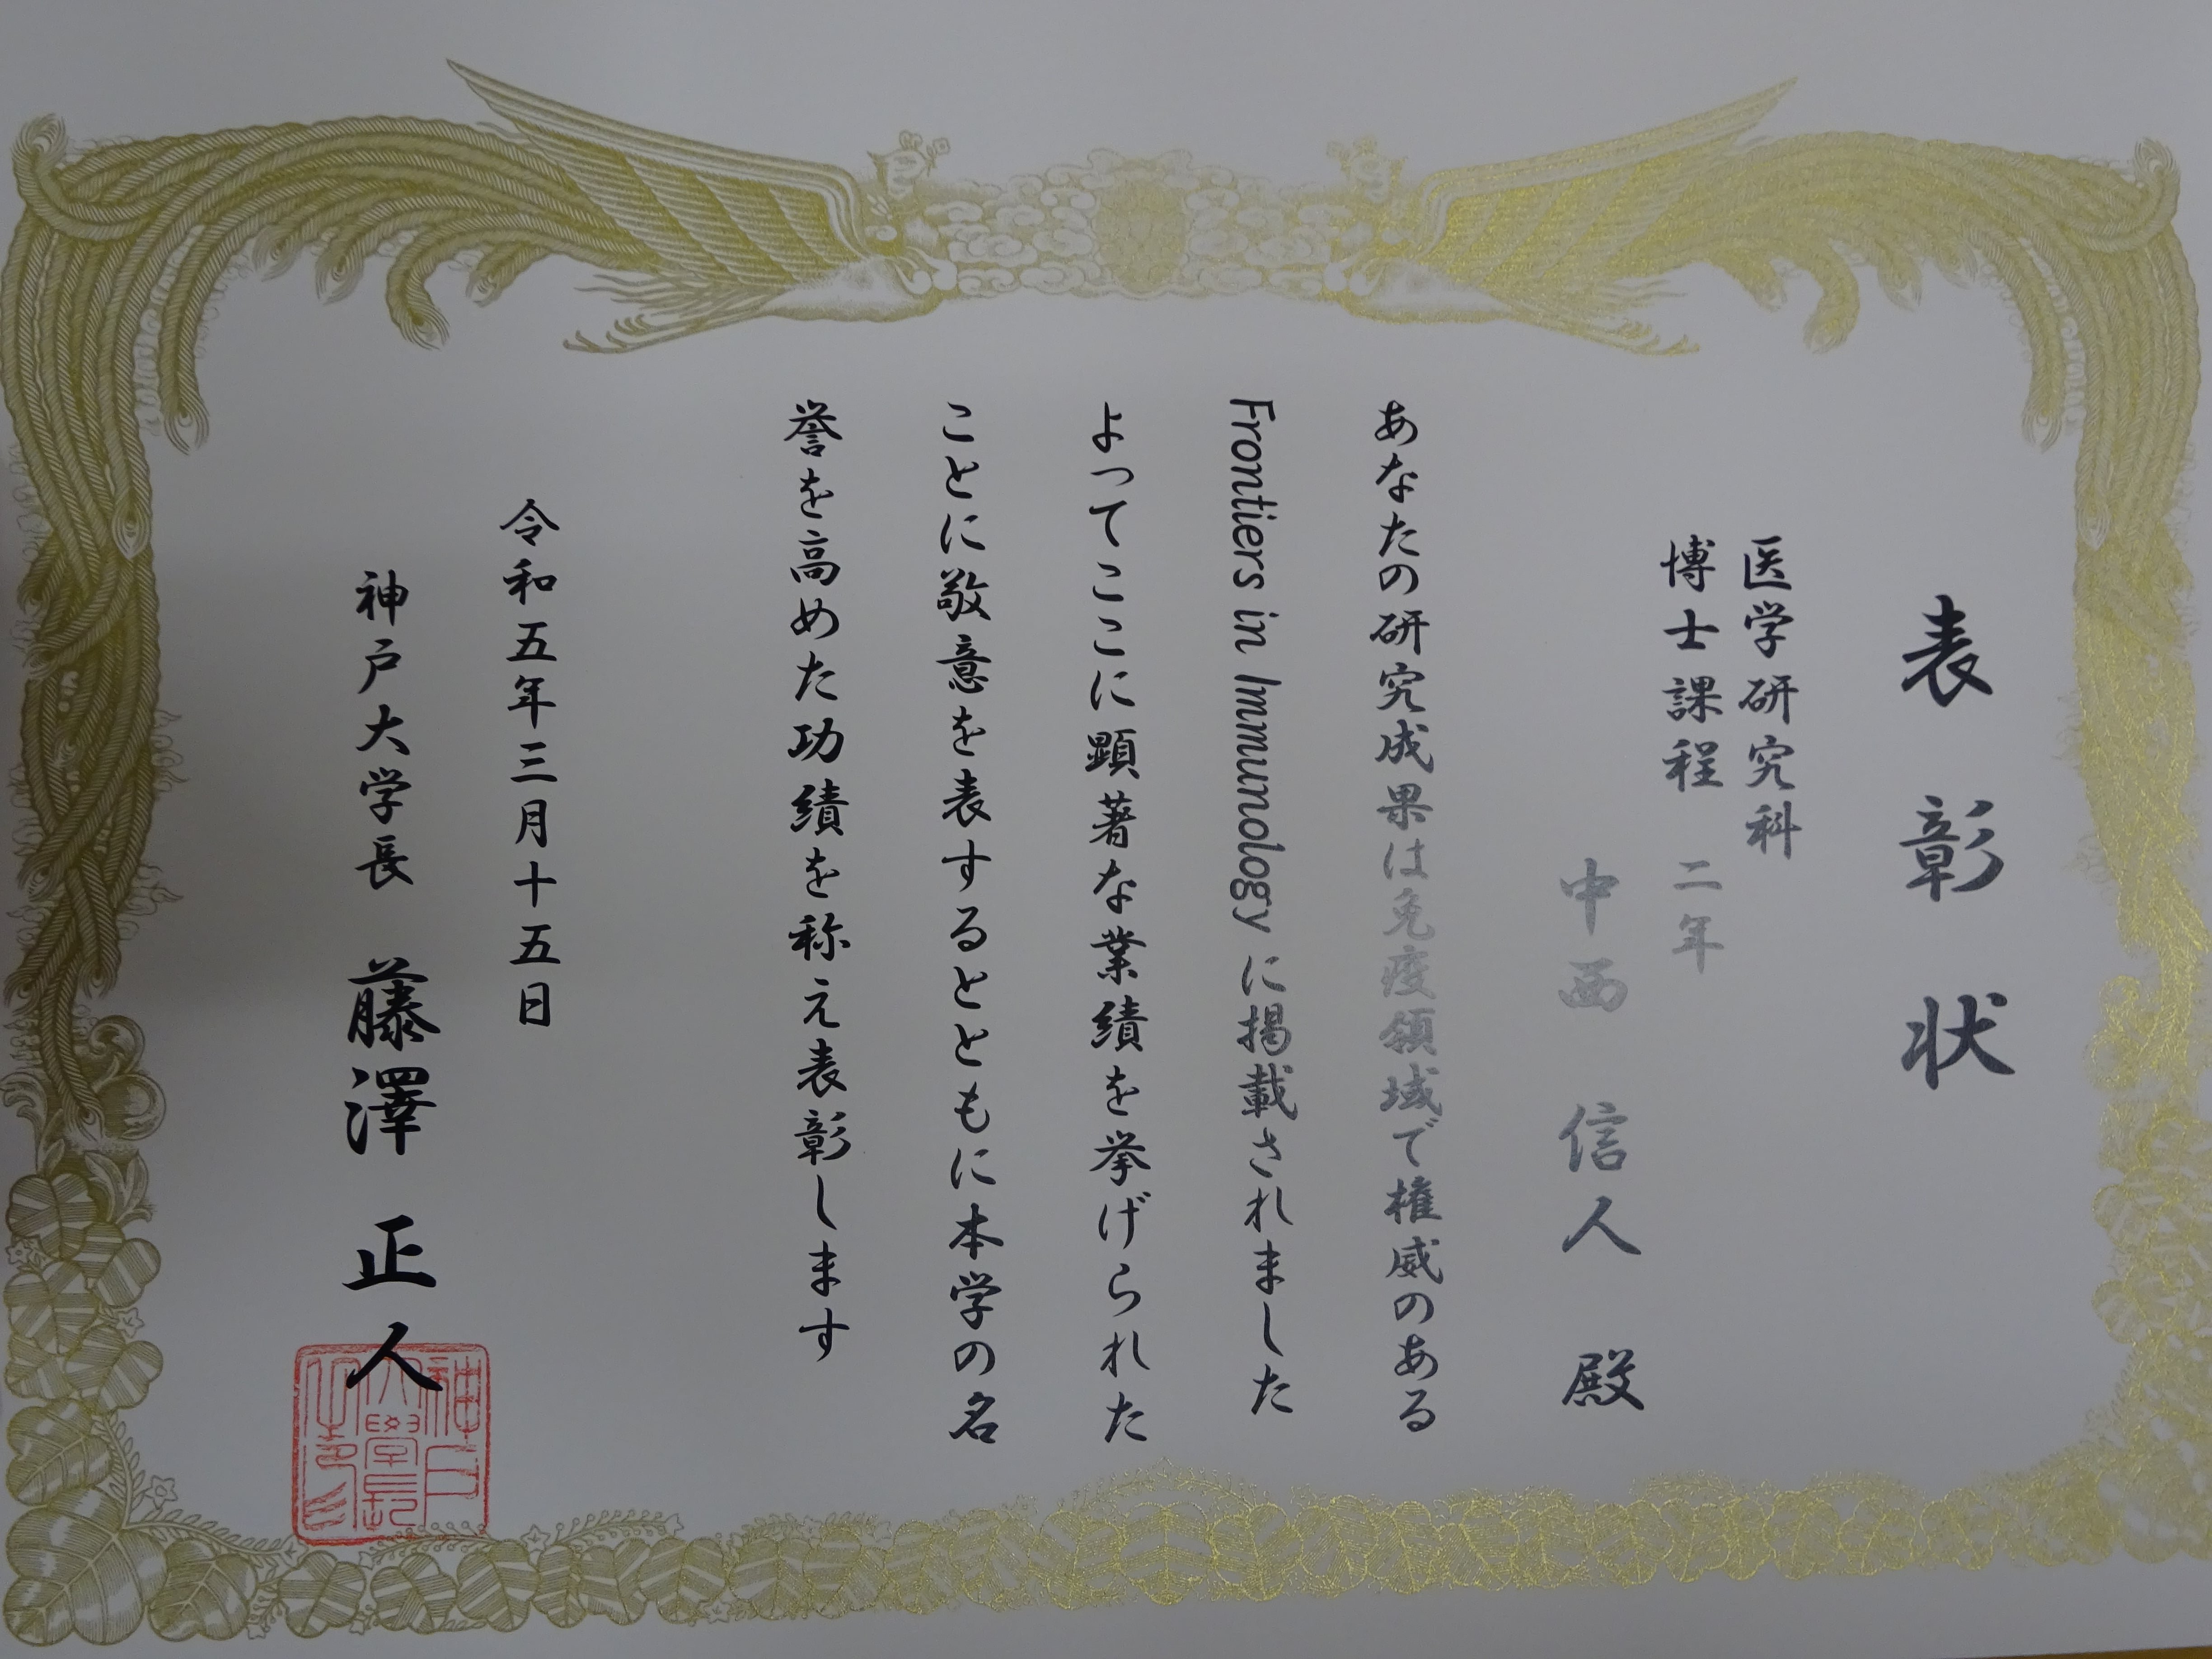 表彰状
医学研究科
博士課程 二年
中西 信人 殿
あなたの研究成果は免疫領域で権威のある
Frontiers in Immunology に掲載されました
よってここに顕著な業績を挙げられた
ことに敬意を表するとともに本学の名
誉を高めた功績を称え表彰します
令和五年三月十五日
神戸大学長 藤澤 正人
神戸
大學長
之印